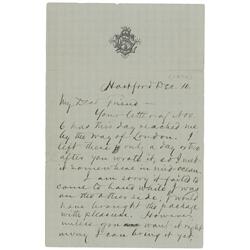 Hartford Dec. 10.
My Dear Friend —
Your letter of Nov.
6 has this day reached me
by the way of London. I
left there only a day or two
after you wrote it, so I met
it somewhere in mid-ocean.
I am sorry it failed to
come to hand while I was
on the other side; I would
have brought the package
with pleasure. However,
unless you want it right
away I can bring it yet,